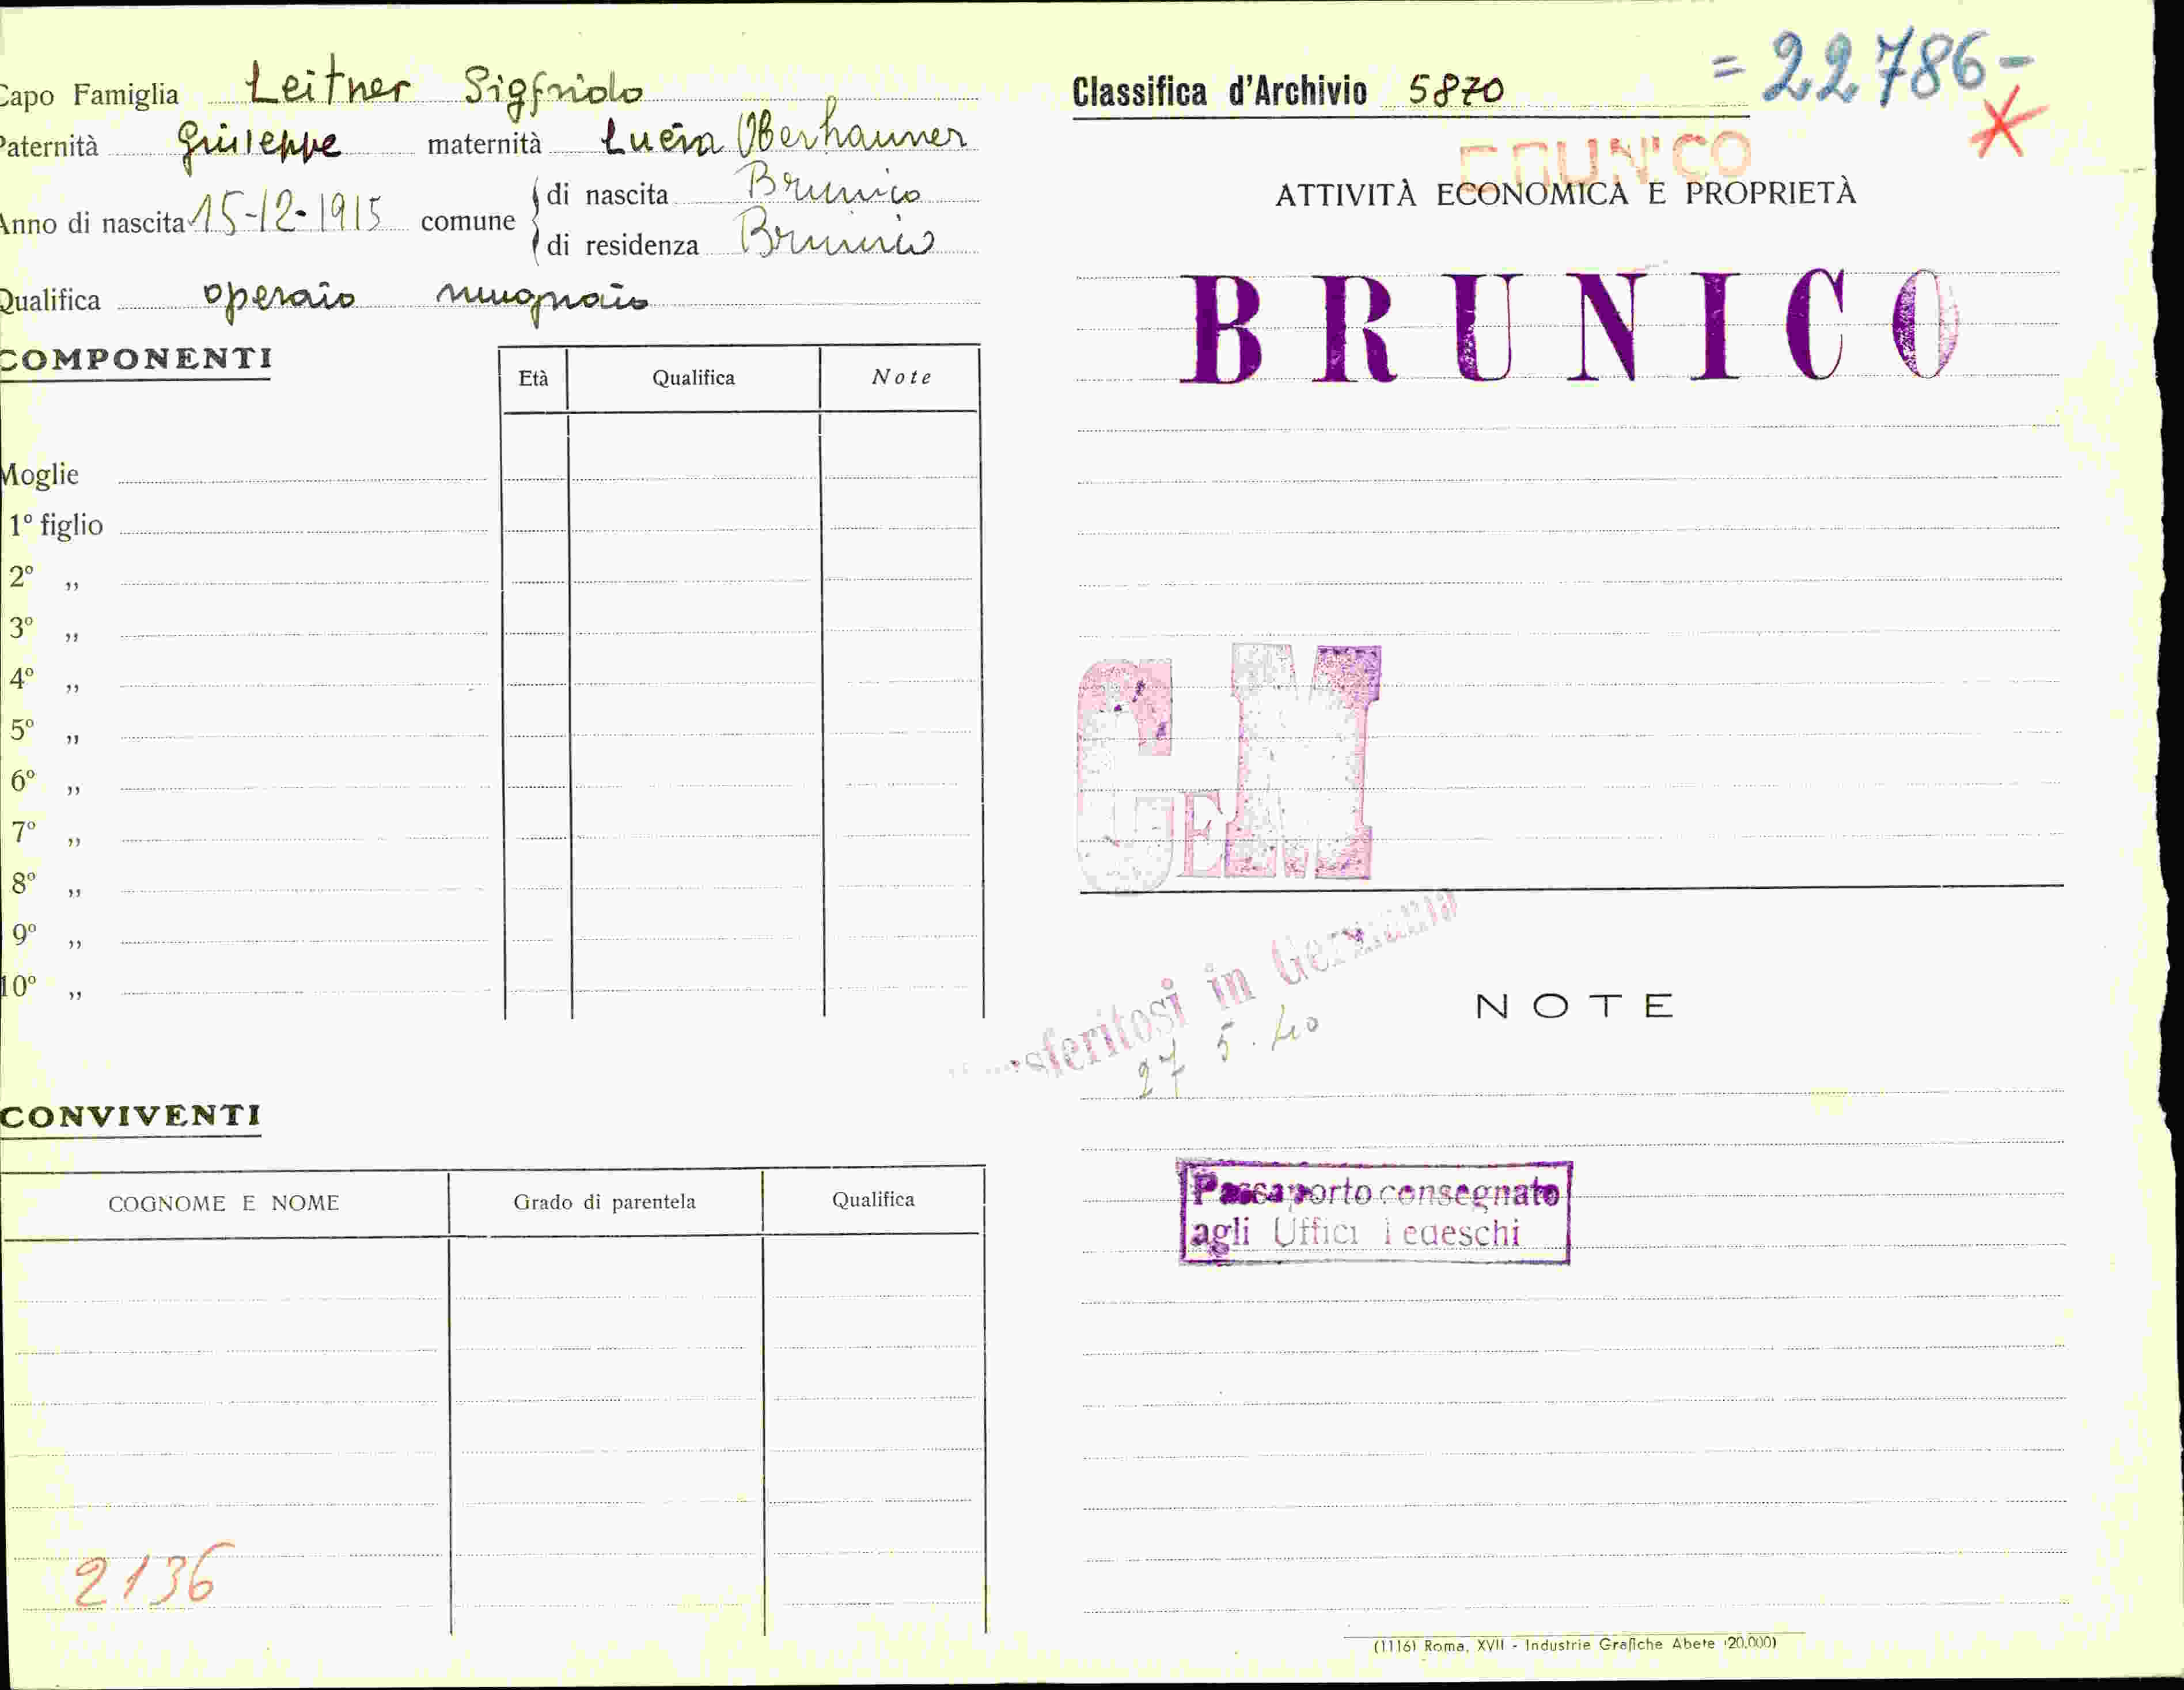 Capo Famiglia Leitner Sigfrido
Paternità Giuseppe maternità Lucia Oberhauner
Anno di nascita 15-12-1915 comune
di nascita Brunico
di residenza Brunico
Qualifica operaio mugnaio
COMPONENTI
Età Qualifica Note
Moglie
1º figlio
2º ,,
3º ,,
4º ,,
5º ,,
6º ,,
7º ,,
8º ,,
9º ,,
10º ,,
CONVIVENTI
COGNOME E NOME Grado di parentela Qualifica
2136
Classifica d'Archivio 5870
= 22786 -
BRUNICO
ATTIVITÀ ECONOMICA E PROPRIETÀ
BRUNICO
GEM
sferitosi in Germania
27 5.40
NOTE
Passaporto consegnato
agli Uffici Tedeschi
(1116) Roma, XVII - Industrie Grafiche Abete (20.000)